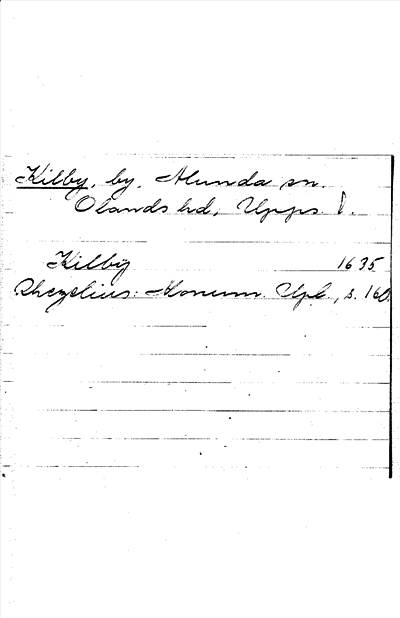 Kilby, by, Alunda sn.
Olands hd, Upps. l.
Kilby 1635
Rhezelius: Monum. Upl., s. 160.